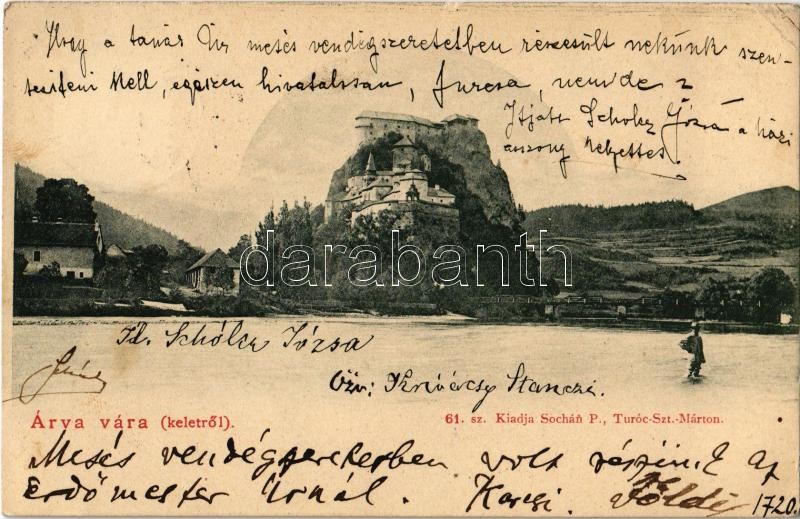 Hogy a tanár Úr mesés vendégszeretetben részesült nekünk szen-
tesíteni kell, egészen hivatalosan, furcsa, nemde?
Ifjabb Schólcz Józsa a házi
asszony helyettes.
darabanth
Id. Schólcz Józsa
Özv: Krivácsy Stanczi.
Árva vára (keletről).
61. sz. Kiadja Socháň P., Turóc-Szt.-Márton.
Mesés vendégszeretetben volt részünk az
Erdőmester Úrnál. Karcsi. Földi 1720.